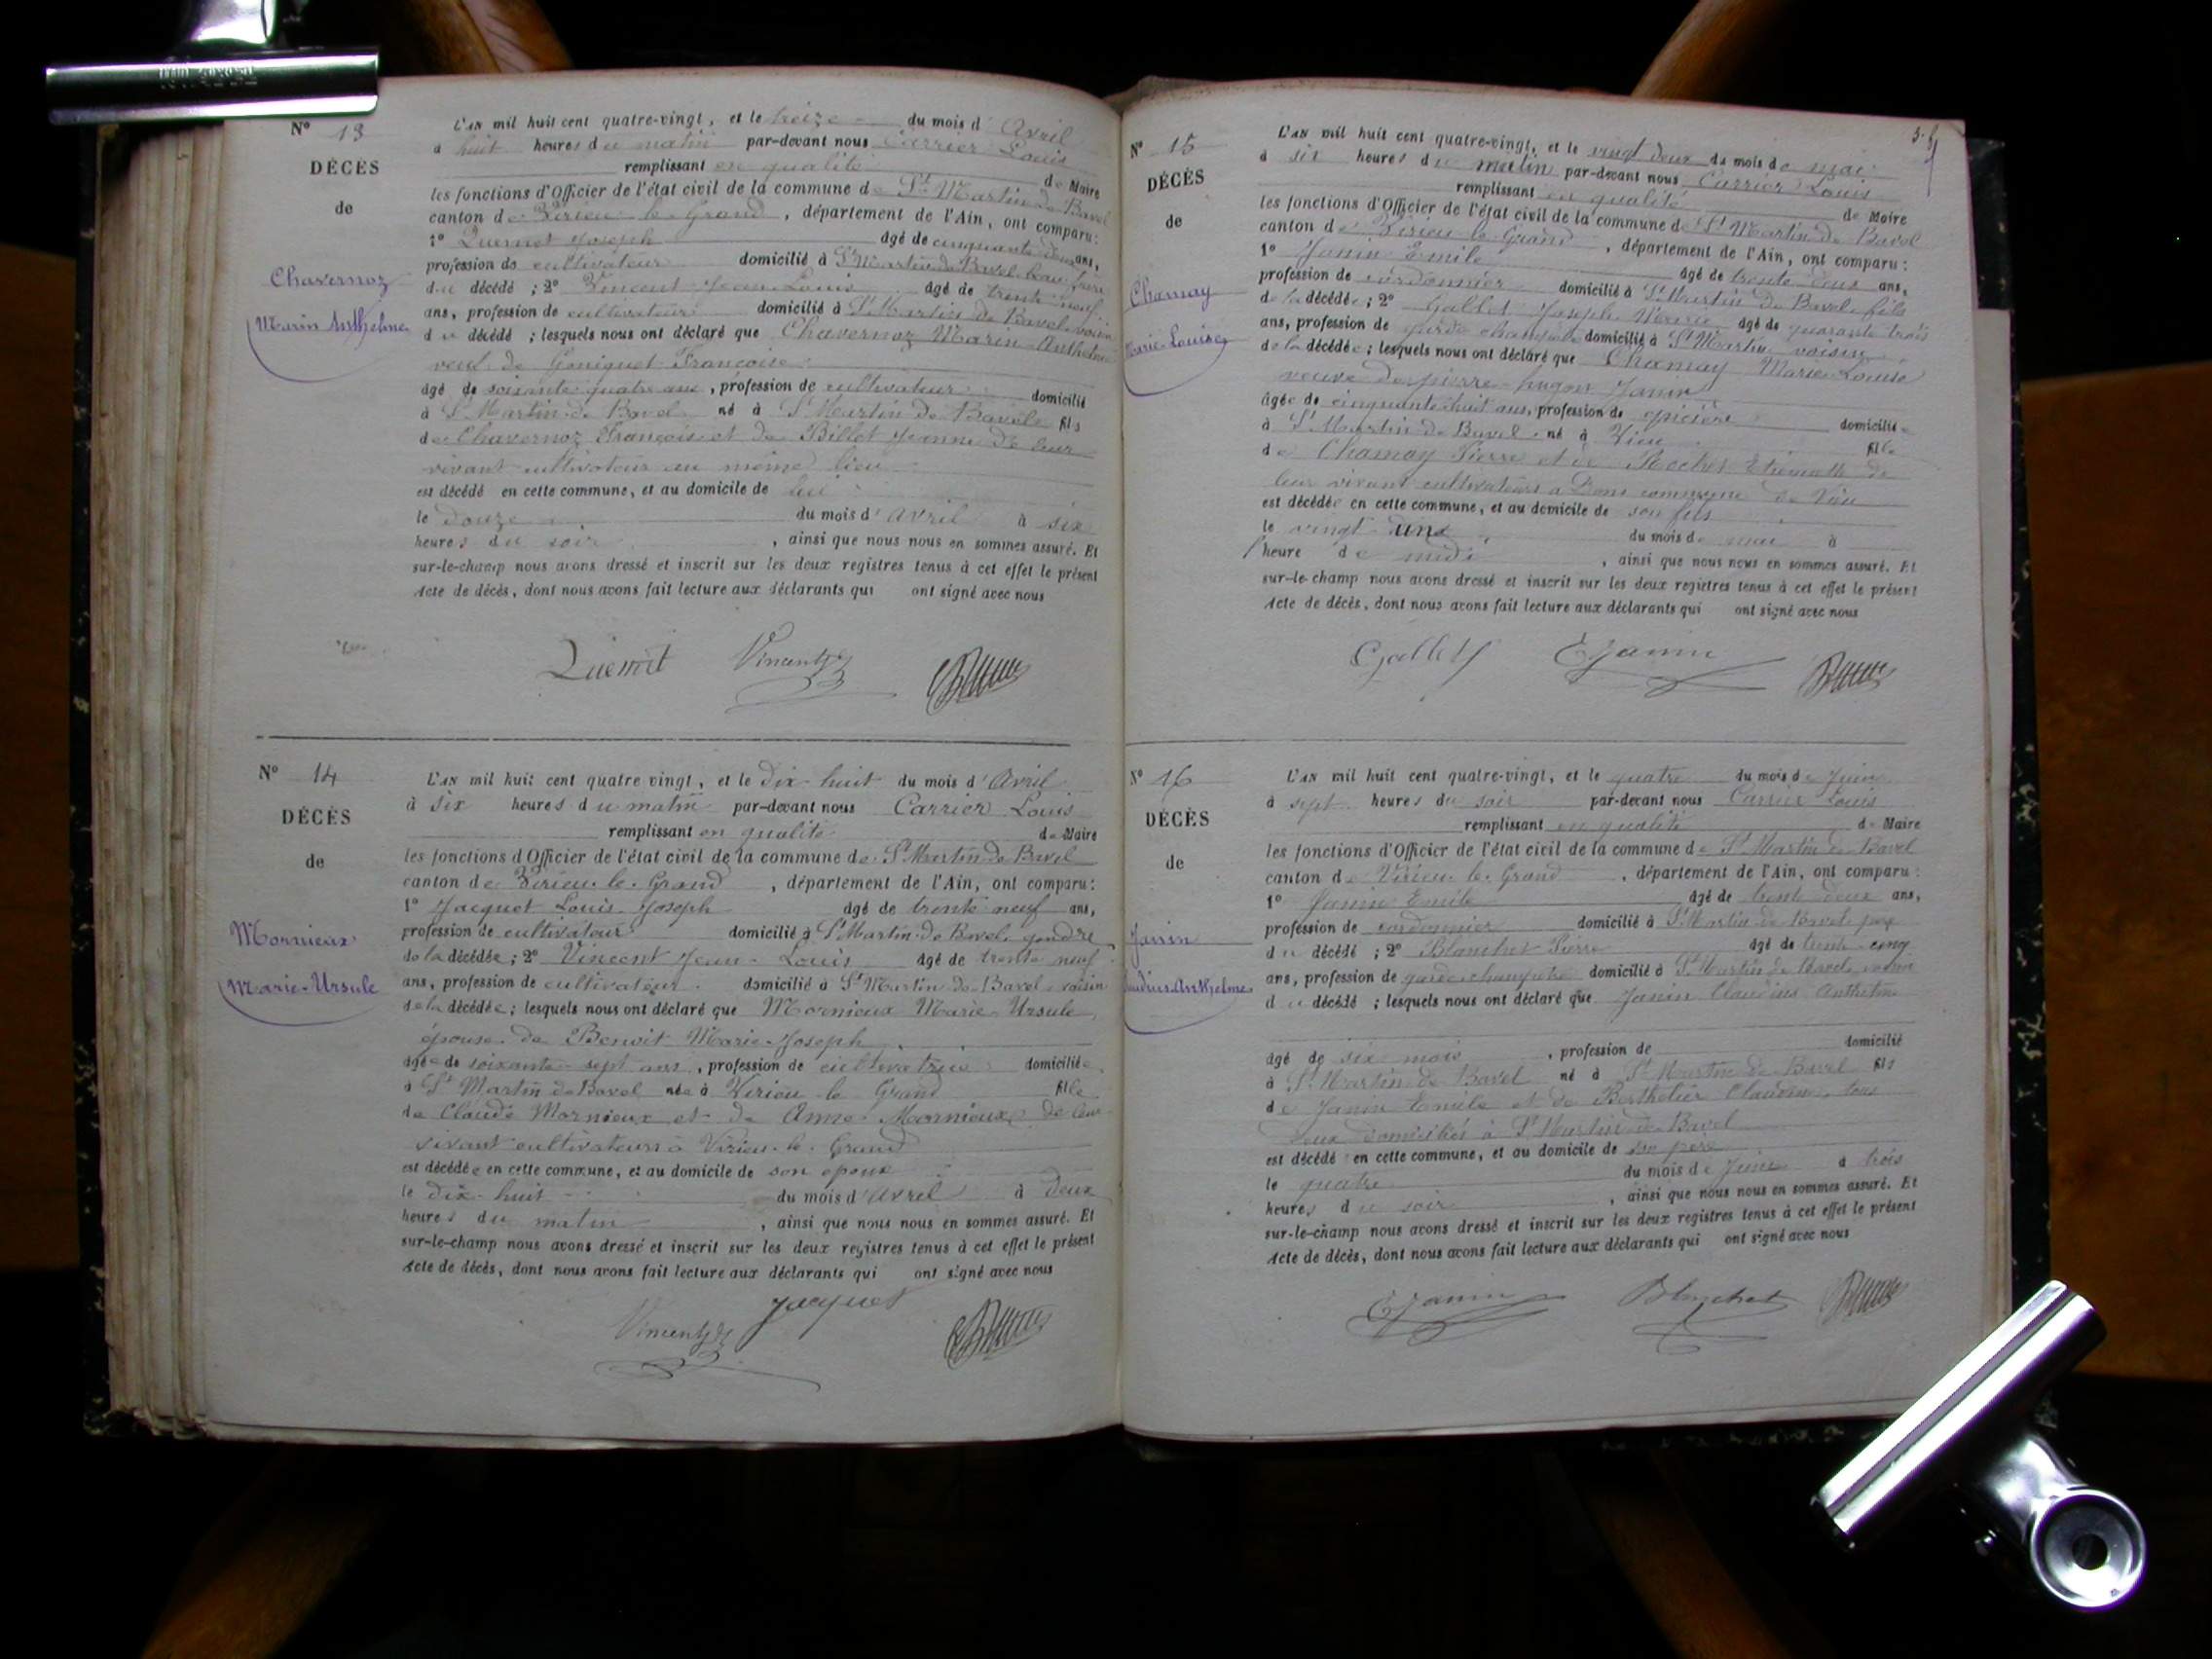 N° 13
DÉCÈS
de
Chavernoz
Marin Anthelme
L'an mil huit cent quatre-vingt, et le treize du mois d'Avril
à huit heures du matin par-devant nous Carrier Louis
remplissant en qualité de Maire
les fonctions d'Officier de l'état civil de la commune de St Martin de Bavel
canton de Virieu-le-Grand, département de l'Ain, ont comparu:
1° Quemet Joseph âgé de cinquante deux ans,
profession de cultivateur domicilié à St Martin de Bavel beau frère
du décédé ; 2° Vincent Jean Louis âgé de trente neuf
ans, profession de cultivateur domicilié à St Martin de Bavel voisin
du décédé ; lesquels nous ont déclaré que Chavernoz Marin-Anthelme
veuf de Goniquet Françoise
âgé de soixante quatre ans, profession de cultivateur domicilié
à St Martin de Bavel né à St Martin de Bavel fils
de Chavernoz François et de Billet Jeanne de leur
vivant cultivateur au même lieu
est décédé en cette commune, et au domicile de lui
le douze du mois d'Avril à six
heures du soir, ainsi que nous nous en sommes assuré. Et
sur-le-champ nous avons dressé et inscrit sur les deux registres tenus à cet effet le présent
Acte de décès, dont nous avons fait lecture aux déclarants qui ont signé avec nous
Quemet Vincent
N° 14
DÉCÈS
de
Mornieux
Marie-Ursule
L'an mil huit cent quatre vingt, et le dix-huit du mois d'Avril
à six heures du matin par-devant nous Carrier Louis
remplissant en qualité de Maire
les fonctions d'Officier de l'état civil de la commune de St Martin de Bavel
canton de Virieu-le-Grand, département de l'Ain, ont comparu:
1° Jacquet Louis Joseph âgé de trente neuf ans,
profession de cultivateur domicilié à St Martin de Bavel gendre
de la décédée ; 2° Vincent Jean-Louis âgé de trente neuf
ans, profession de cultivateur domicilié à St Martin de Bavel voisin
de la décédée ; lesquels nous ont déclaré que Mornieux Marie Ursule
épouse de Benoit Marie-Joseph
âgée de soixante-sept ans, profession de cultivatrice domiciliée
à St Martin de Bavel née à Virieu le Grand fille
de Claude Mornieux et de Anne Mornieux de leur
vivant cultivateurs à Virieu-le-Grand
est décédée en cette commune, et au domicile de son époux
le dix-huit du mois d'Avril à deux
heures du matin, ainsi que nous nous en sommes assuré. Et
sur-le-champ nous avons dressé et inscrit sur les deux registres tenus à cet effet le présent
Acte de décès, dont nous avons fait lecture aux déclarants qui ont signé avec nous
Vincent Jacquet
N° 15
DÉCÈS
de
Chamay
Marie-Louise
L'an mil huit cent quatre-vingt, et le vingt deux du mois de mai
à six heures du matin par-devant nous Carrier Louis
remplissant en qualité de Maire
les fonctions d'Officier de l'état civil de la commune de St Martin de Bavel
canton de Virieu-le-Grand, département de l'Ain, ont comparu:
1° Janin Emile âgé de trente deux ans,
profession de cordonnier domicilié à St Martin de Bavel fils
de la décédée ; 2° Gallet Joseph âgé de quarante trois
ans, profession de garde champêtre domicilié à St Martin voisin
de la décédée ; lesquels nous ont déclaré que Chamay Marie-Louise
veuve de pierre-hugon Janin
âgée de cinquante huit ans, profession de épicière domiciliée
à St Martin de Bavel né à Vieu fille
de Chamay Pierre et de Rochet Etiennette de
leur vivant cultivateurs à Dons commune de Vieu
est décédée en cette commune, et au domicile de son fils
le vingt une du mois de mai à
l'heure de midi, ainsi que nous nous en sommes assuré. Et
sur-le-champ nous avons dressé et inscrit sur les deux registres tenus à cet effet le présent
Acte de décès, dont nous avons fait lecture aux déclarants qui ont signé avec nous
Gallet EJanin
N° 16
DÉCÈS
de
Janin
Claudius-Anthelme
L'an mil huit cent quatre-vingt, et le quatre du mois de Juin
à sept heures du soir par-devant nous Carrier Louis
remplissant en qualité de Maire
les fonctions d'Officier de l'état civil de la commune de St Martin de Bavel
canton de Virieu-le-Grand, département de l'Ain, ont comparu:
1° Janin Emile âgé de trente deux ans,
profession de cordonnier domicilié à St Martin de Bavel père
du décédé ; 2° Blanchet Pierre âgé de trente-cinq
ans, profession de garde champêtre domicilié à St Martin de Bavel voisin
du décédé ; lesquels nous ont déclaré que Janin Claudius Anthelme
âgé de six mois, profession de domicilié
à St Martin de Bavel né à St Martin de Bavel fils
de Janin Emile et de Berthelier Claudine tous
deux domiciliés à St Martin de Bavel
est décédé en cette commune, et au domicile de son père
le quatre du mois de Juin à trois
heures du soir, ainsi que nous nous en sommes assuré. Et
sur-le-champ nous avons dressé et inscrit sur les deux registres tenus à cet effet le présent
Acte de décès, dont nous avons fait lecture aux déclarants qui ont signé avec nous
EJanin Blanchet